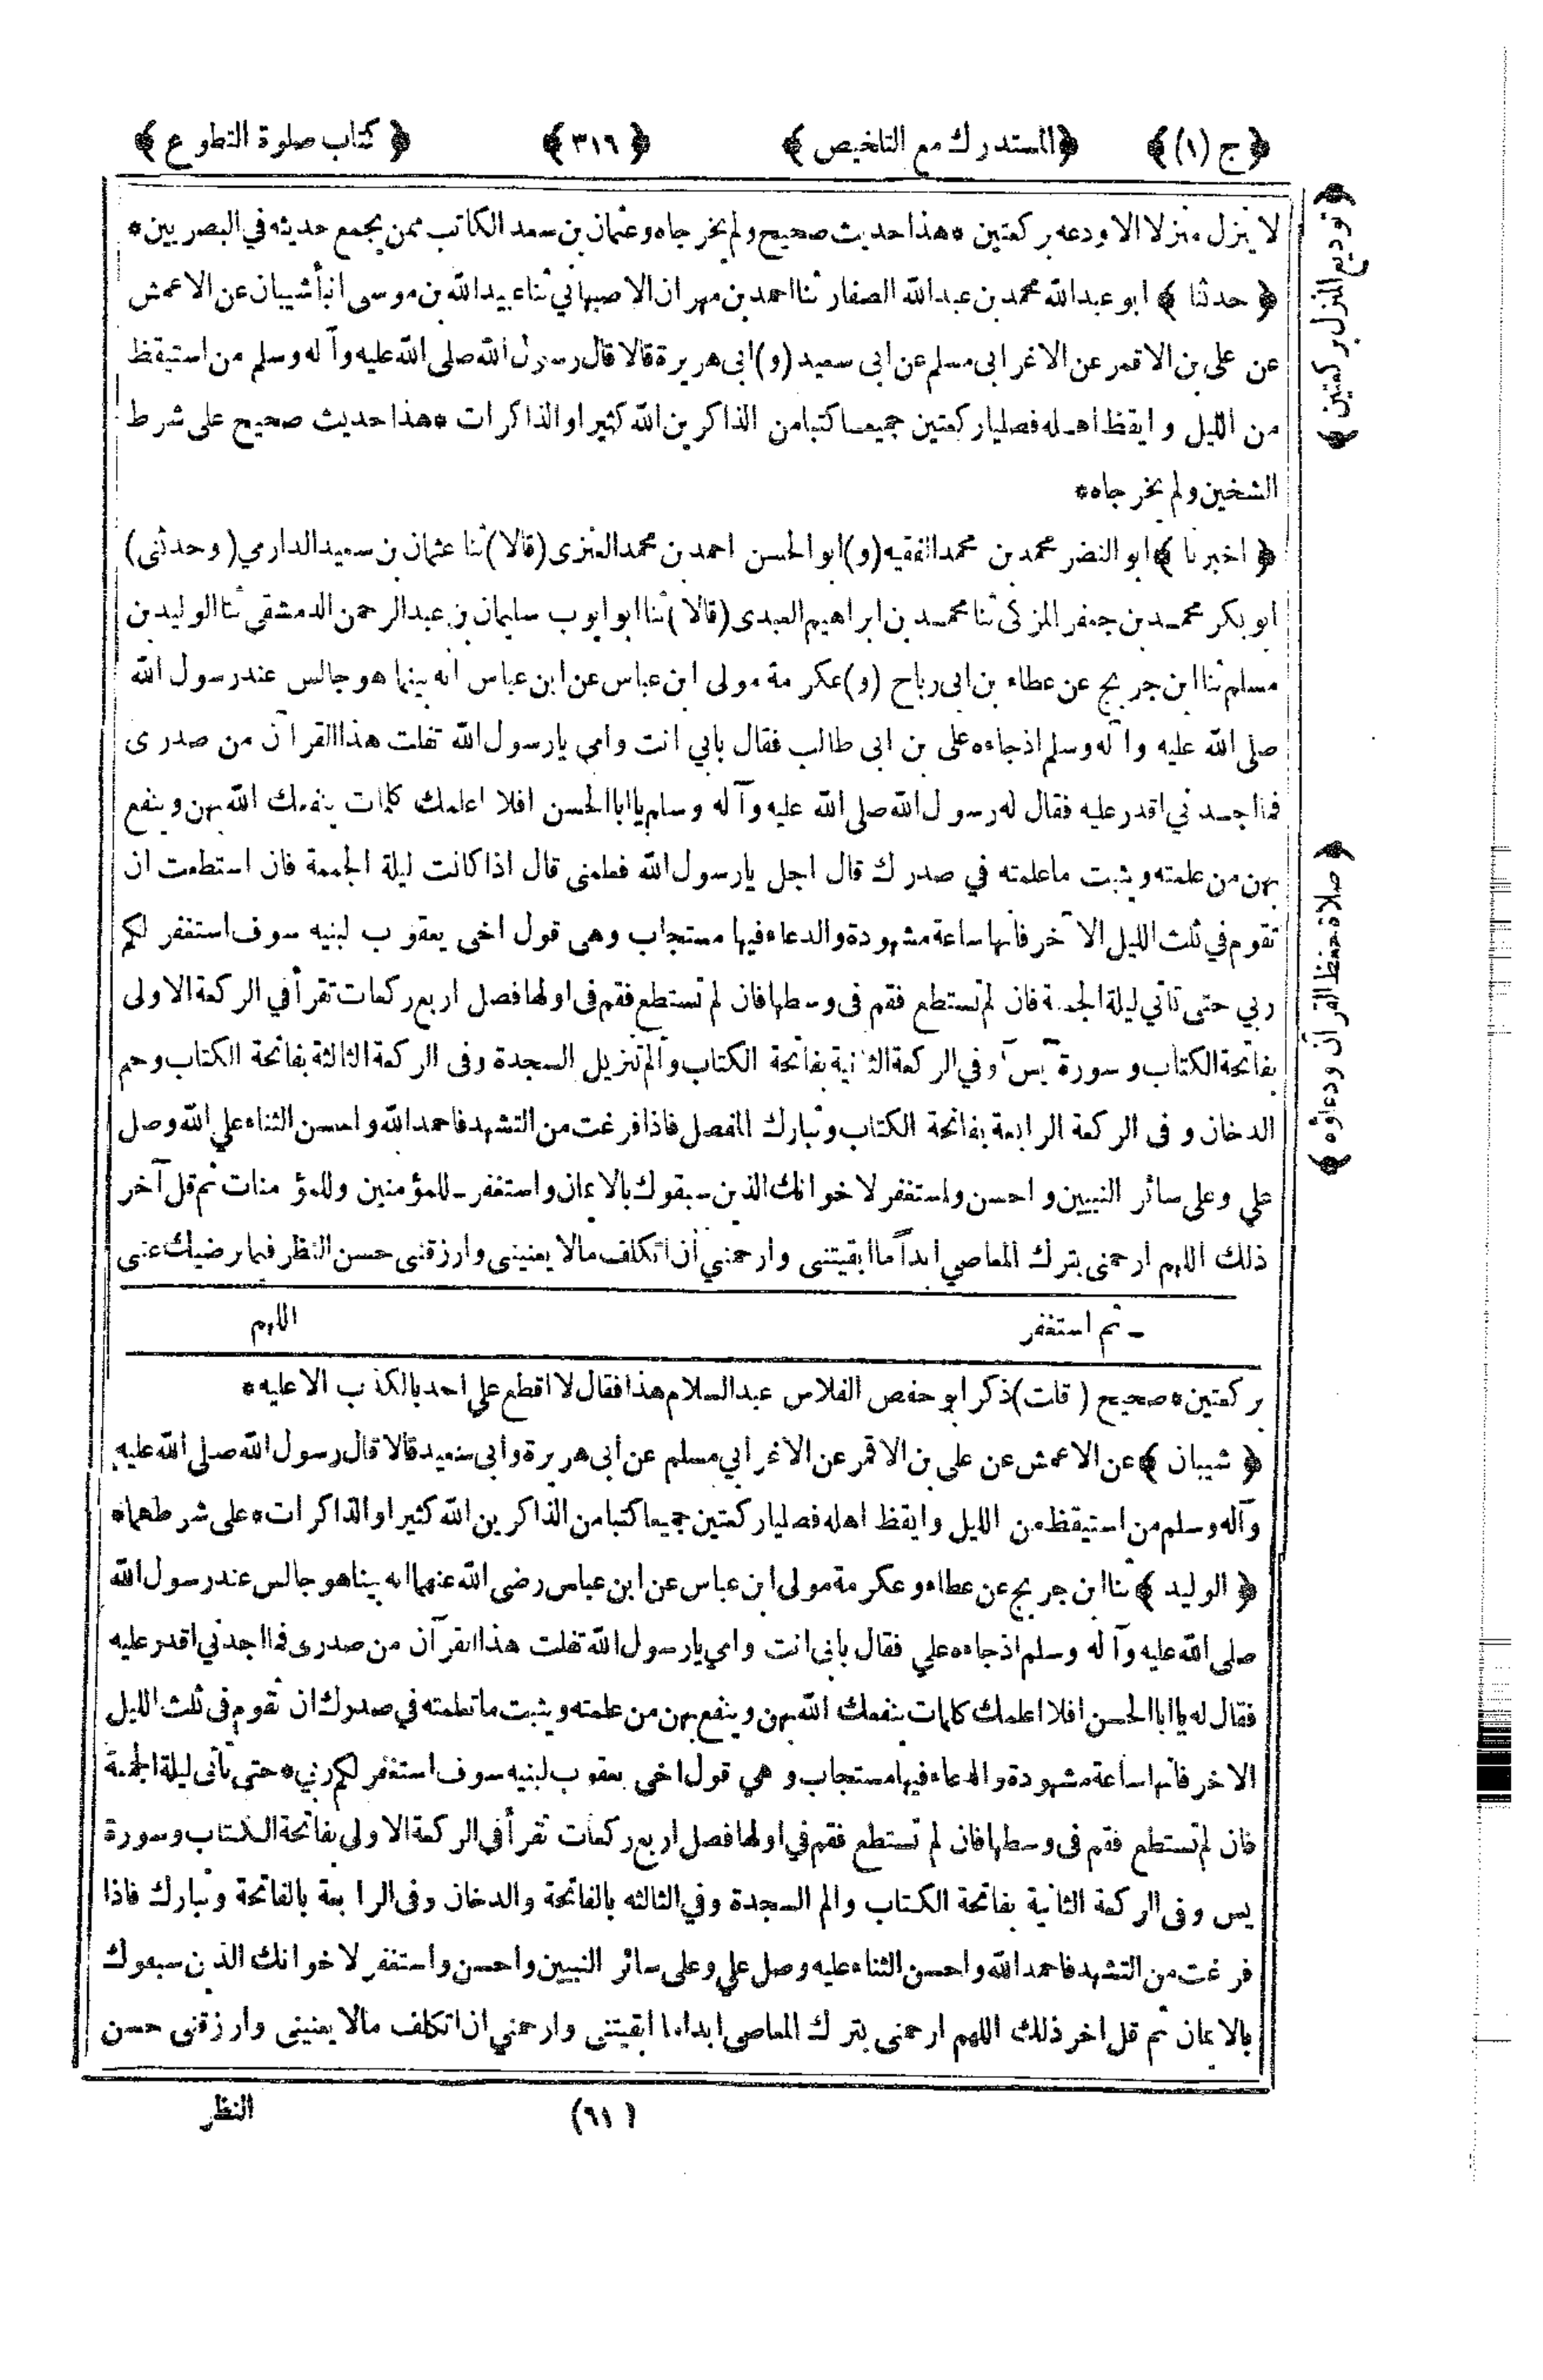 ﴿ج (١)﴾ ﴿المستدرك مع التلخيص﴾ ﴿٣١٦﴾ ﴿كتاب صلوة التطوع﴾
﴿توديع المنزل بركعتين﴾
لا ينزل منزلا الا ودعه بركعتين * هذا حديث صحيح ولم يخرجاه وعثمان بن سعد الكاتب ممن يجمع حديثه في البصريين *
﴿ حدثنا ﴾ ابو عبدالله محمد بن عبدالله الصفار ثنا احمد بن مهران الاصبهاني ثنا عبيدالله بن موسى انبأ شيبان عن الاعمش
عن علي بن الاقمر عن الاغر ابى مسلم عن ابى سعيد (و) ابى هريرة قالا قال رسول الله صلى الله عليه وآله وسلم من استيقظ
من الليل وايقظ اهله فصليا ركعتين جميعا كتبا من الذاكرين الله كثيرا والذاكرات * هذا حديث صحيح على شرط
الشخين ولم يخرجاه *
﴿ اخبرنا ﴾ ابو النضر محمد بن محمد الفقيه (و) ابو الحسن احمد بن محمد العنزى (قالا) ثنا عثمان بن سعيد الدارمي (وحدثنى)
ابو بكر محمد بن جعفر المزكى ثنا محمد بن ابراهيم العبدى (قالا) ثنا ابو ايوب سليمان بن عبدالرحمن الدمشقى ثنا الوليد بن
مسلم ثنا ابن جريج عن عطاء بن ابى رباح (و) عكرمة مولى ابن عباس عن ابن عباس انه بينما هو جالس عند رسول الله
صلى الله عليه وآله وسلم اذ جاءه على بن ابى طالب فقال بابي انت وامى يا رسول الله تفلت هذا القرآن من صدرى
فما اجدني اقدر عليه فقال له رسول الله صلى الله عليه وآله وسلم يا ابا الحسن افلا اعلمك كلمات ينفعك الله بهن وينفع
بهن من علمته ويثبت ما علمته في صدرك قال اجل يا رسول الله فعلمنى قال اذا كانت ليلة الجمعة فان استطعت ان
﴿صلاة حفظ القرآن ودعاؤه﴾
تقوم في ثلث الليل الآخر فانها ساعة مشهودة والدعاء فيها مستجاب وهى قول اخى يعقوب لبنيه سوف استغفر لكم
ربي حتى تاتي ليلة الجمعة فان لم تستطع فقم فى وسطها فان لم تستطع فقم فى اولها فصل اربع ركعات تقرأ في الركعة الاولى
بفاتحة الكتاب وسورة يس وفي الركعة الثانية بفاتحة الكتاب والم تنزيل السجدة وفى الركعة الثالثة بفاتحة الكتاب وحم
الدخان وفى الركعة الرابعة بفاتحة الكتاب وتبارك المفصل فاذا فرغت من التشهد فاحمد الله واحسن الثناء علي الله وصل
علي وعلى سائر النبيين واحسن واستغفر لاخوانك الذين سبقوك بالايمان واستغفر ـ للمؤمنين وللمؤمنات ثم قل آخر
ذلك اللهم ارحمنى بترك المعاصي ابداً ما ابقيتنى وارحمني ان اتكلف مالا يعنينى وارزقنى حسن النظر فيما يرضيك عنى
ـ ثم استغفر اللهم
بركعتين * صحيح (قلت) ذكر ابو حفص الفلاس عبد السلام هذا فقال لا اقطع علي احد بالكذب الا عليه *
﴿ شيبان ﴾ عن الاعمش عن علي بن الاقمر عن الاغر ابي مسلم عن ابى هريرة وابى سعيد قالا قال رسول الله صلى الله عليه
وآله وسلم من استيقظ من الليل وايقظ اهله فصليا ركعتين جميعا كتبا من الذاكرين الله كثيرا والذاكرات * على شرطهما *
﴿ الوليد ﴾ ثنا ابن جريج عن عطاء وعكرمة مولى ابن عباس عن ابن عباس رضى الله عنهما انه بينا هو جالس عند رسول الله
صلى الله عليه وآله وسلم اذ جاءه علي فقال بابى انت وامي يا رسول الله تفلت هذا القرآن من صدرى فما اجدني اقدر عليه
فقال له يا ابا الحسن افلا اعلمك كلمات ينفعك الله بهن وينفع بهن من علمته ويثبت ما تعلمته في صدرك ان تقوم فى ثلث الليل
الاخر فانها ساعة مشهودة والدعاء فيها مستجاب وهي قول اخى يعقوب لبنيه سوف استغفر لكم ربي * حتى تأتى ليلة الجمعة
فان لم تستطع فقم فى وسطها فان لم تستطع فقم في اولها فصل اربع ركعات تقرأ فى الركعة الاولى بفاتحة الكتاب وسورة
يس وفى الركعة الثانية بفاتحة الكتاب والم السجدة وفي الثالثه بالفاتحة والدخان وفى الرابعة بالفاتحة وتبارك فاذا
فرغت من التشهد فاحمد الله واحسن الثناء عليه وصل علي وعلى سائر النبيين واحسن واستغفر لاخوانك الذين سبقوك
بالايمان ثم قل اخر ذلك اللهم ارحمنى بترك المعاصى ابدا ما ابقيتنى وارحمني ان اتكلف مالا يعنينى وارزقنى حسن
(٦١) النظر